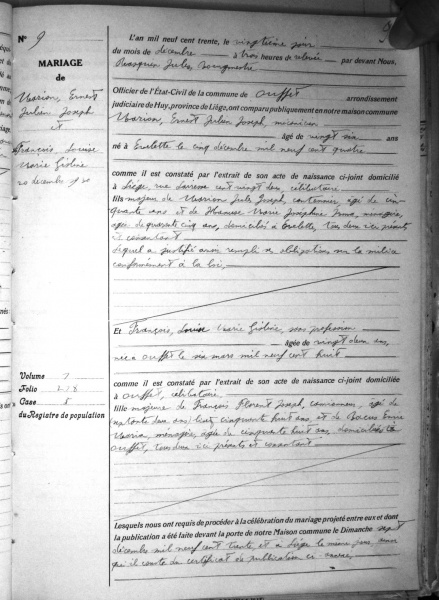 N° 9
MARIAGE
de
Marion, Ernest
Julien Joseph
et
François, Louise
Marie Gisline
20 décembre 1930
Volume 7
Folio 278
Case 8
du Registre de population
L'an mil neuf cent trente, le vingtième jour
du mois de décembre à trois heures de relevée par devant Nous,
Jules
Officier de l'État-Civil de la commune de Ouffet arrondissement
judiciaire de Huy, province de Liége, ont comparu publiquement en notre maison commune
Marion, Ernest Julien Joseph, mécanicien
âgé de vingt six ans
né à Evelette le cinq décembre mil neuf cent quatre
comme il est constaté par l'extrait de son acte de naissance ci-joint domicilié
à Liége, rue cent vingt deux, célibataire
fils majeur de Marion Jules Joseph, cantonnier, âgé de cin-
quante ans et de Marie Joséphine, ménagère,
âgée de quarante cinq ans, domiciliés à Evelette, tous deux ici présents
et consentant
Lequel a justifié avoir rempli ses obligations sur la milice
conformément à la loi,
Et François, Louise Marie Gisline, sans profession
âgée de vingt deux ans,
née à Ouffet le six mars mil neuf cent huit
comme il est constaté par l'extrait de son acte de naissance ci-joint domiciliée
à Ouffet, célibataire
fille majeure de François Florent Joseph, âgé de
cinquante huit ans et de
Maria, ménagère, âgée de cinquante huit ans, domiciliés à
Ouffet, tous deux ici présents et consentant
Lesquels nous ont requis de procéder à la célébration du mariage projeté entre eux et dont
la publication a été faite devant la porte de notre Maison commune le Dimanche sept
décembre mil neuf cent trente et à Liége le même jour, ainsi
qu'il conste du certificat de publication ci-annexé,